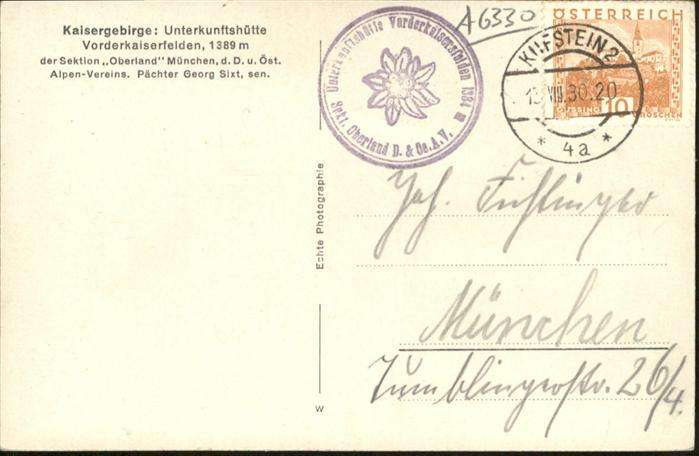 Kaisergebirge: Unterkunftshütte
Vorderkaiserfelden, 1389 m
der Sektion „Oberland" München, d. D. u. Öst.
Alpen-Vereins. Pächter Georg Sixt, sen.
Unterkunftshütte Vorderkaiserfelden 1384 m
Sekt. Oberland D. & Oe. A. V.
AG330
ÖSTERREICH
10
GROSCHEN
KUFSTEIN 2
13. VIII. 30. 20
* 4a *
Echte Photographie
W
Joh.
München
Tumblingerstr. 26/4.